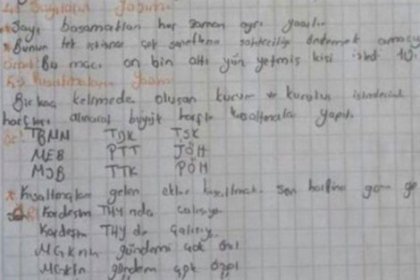 Sayıların Yazımı
* Sayı basamakları her zaman ayrı yazılır.
* Bunun tek istisnası çek senetlerde sahteciliği önlemek
Bu maçı on bin altı yüz yetmiş kişi izledi
Kısaltmaların Yazımı
Birkaç kelimede oluşan kurum ve kuruluş isimlerinde
harfler alınarak büyük harfle kısaltmalar yapılır.
TBMM TDK TSK
MEB PTT JÖH
MSB TTK PÖH
* Kısaltmalara gelen ekler kısaltmanın son harfine göre
Kardeşim THY'nda çalışıyor.
Kardeşim THY'de çalışıyor.
gündemi çok özel
gündem çok özel